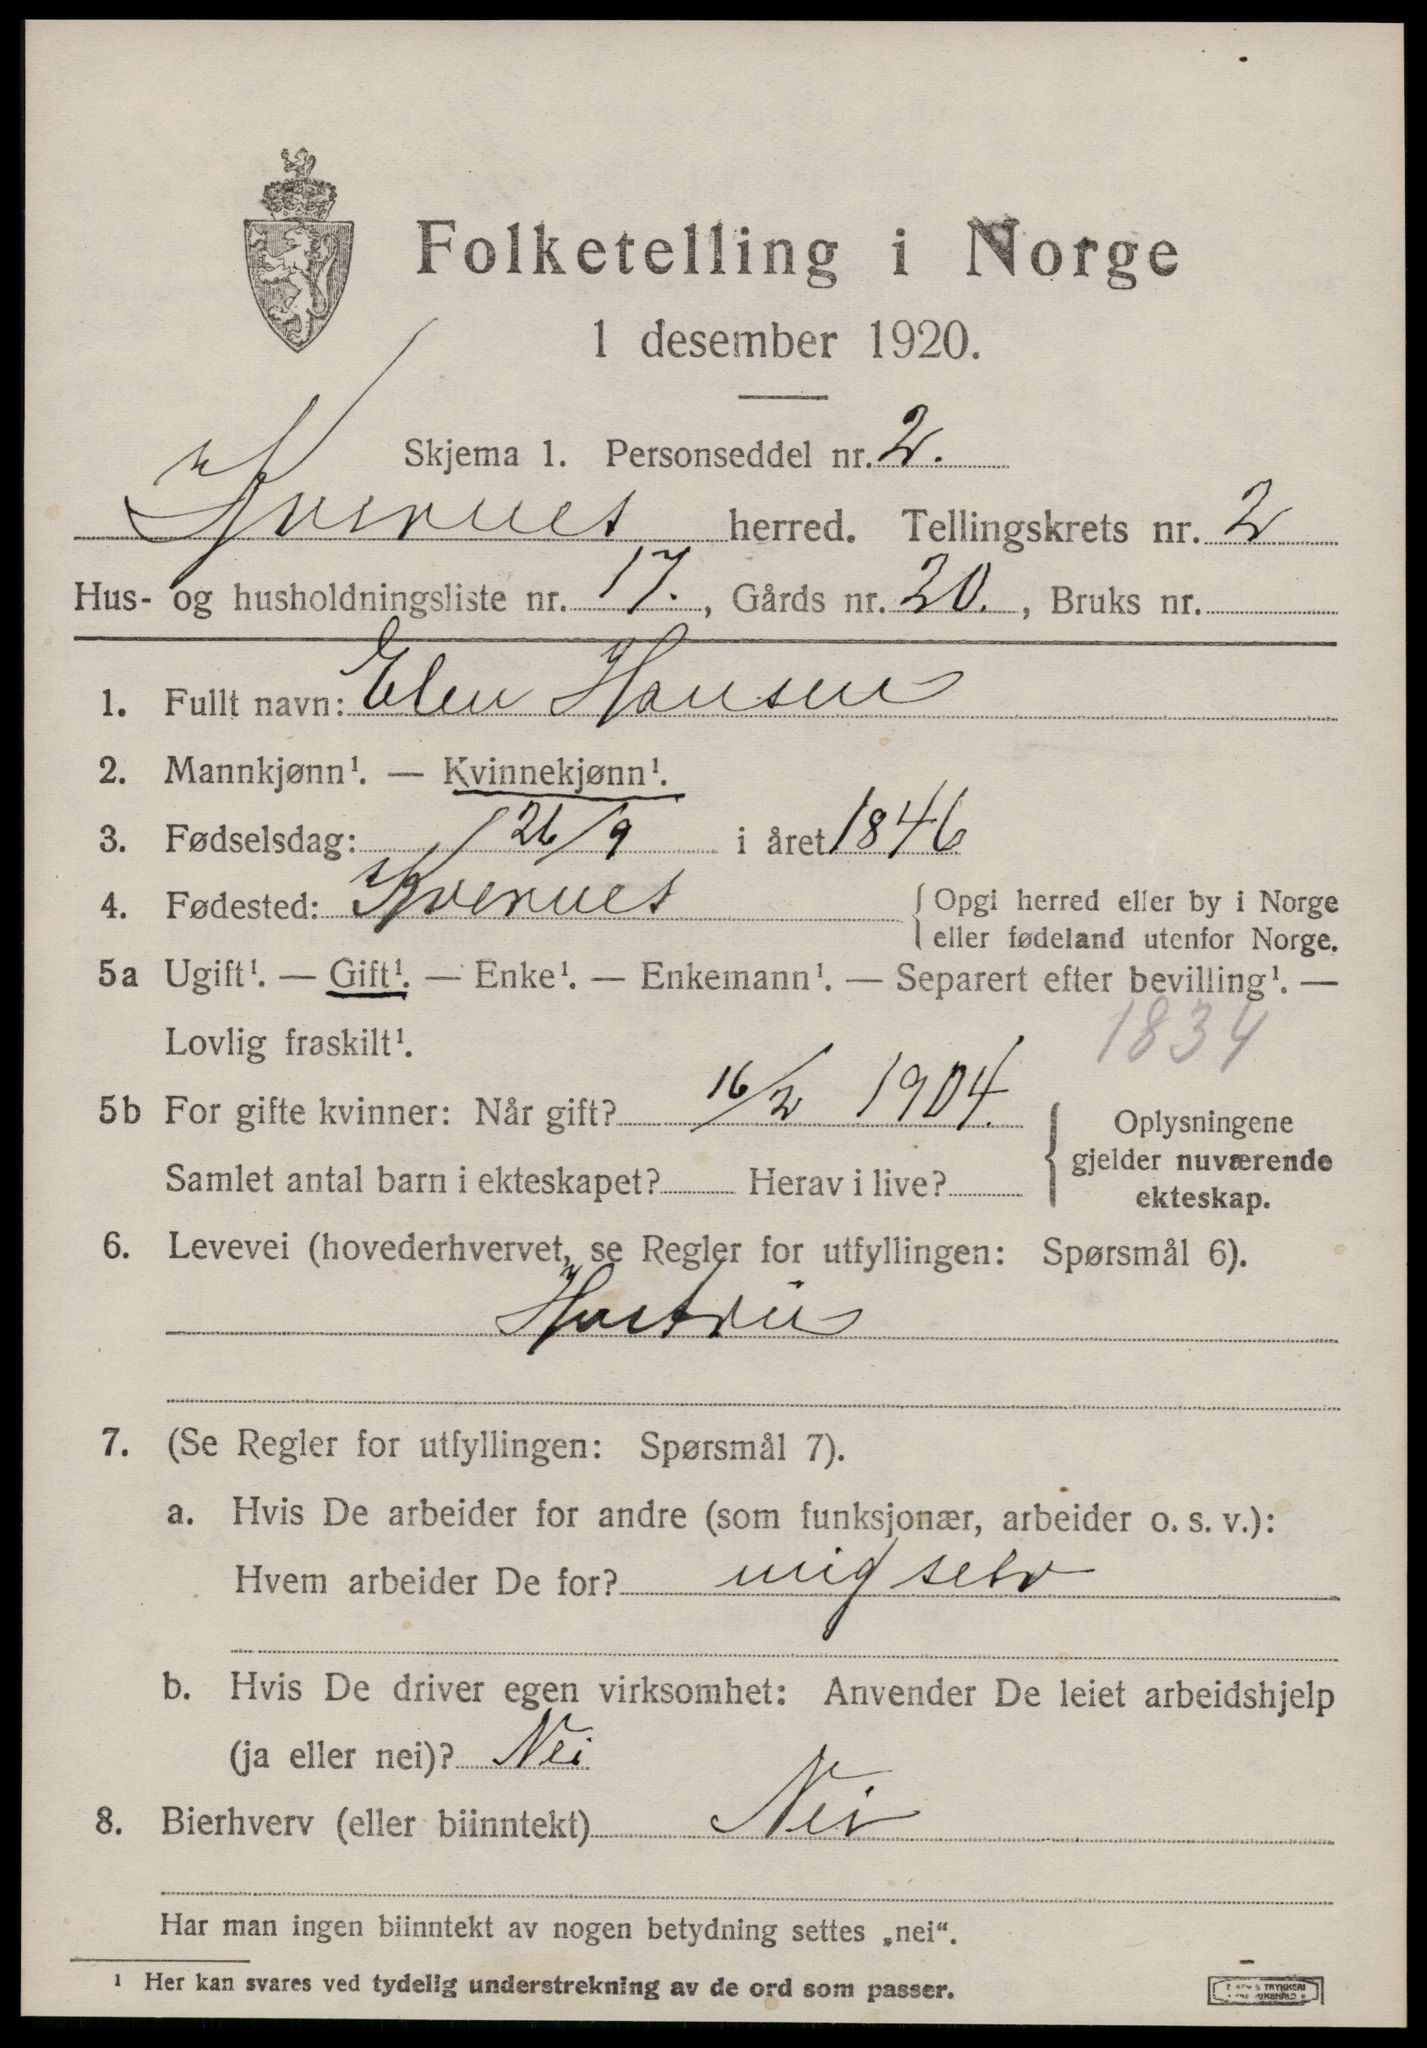 Folketelling i Norge
1 desember 1920.
Skjema 1. Personseddel nr. 2.
Kvernes herred. Tellingskrets nr. 2
Hus- og husholdningsliste nr. 17., Gårds nr. 20., Bruks nr.
1. Fullt navn: Elen Hansen
2. Mannkjønn¹. — Kvinnekjønn¹.
3. Fødselsdag: 26/9 i året 1846
4. Fødested: Kvernes { Opgi herred eller by i Norge
eller fødeland utenfor Norge.
5a Ugift¹. — Gift¹. — Enke¹. — Enkemann¹. — Separert efter bevilling¹. —
Lovlig fraskilt¹. 1834
5b For gifte kvinner: Når gift? 16/2 1904. { Oplysningene
gjelder nuværende
ekteskap.
Samlet antal barn i ekteskapet? Herav i live?
6. Levevei (hovederhvervet, se Regler for utfyllingen: Spørsmål 6).
Hustru
7. (Se Regler for utfyllingen: Spørsmål 7).
a. Hvis De arbeider for andre (som funksjonær, arbeider o. s. v.):
Hvem arbeider De for? mig selv
b. Hvis De driver egen virksomhet: Anvender De leiet arbeidshjelp
(ja eller nei)? Nei
8. Bierhverv (eller biinntekt) Nei
Har man ingen biinntekt av nogen betydning settes „nei“.
¹ Her kan svares ved tydelig understrekning av de ord som passer.